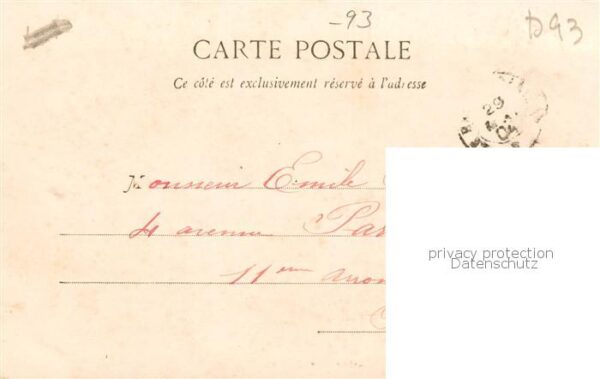 -93
D93
CARTE POSTALE
Ce côté est exclusivement réservé à l'adresse
29
Monsieur Emile
4 avenue Par
11ème
privacy protection
Datenschutz